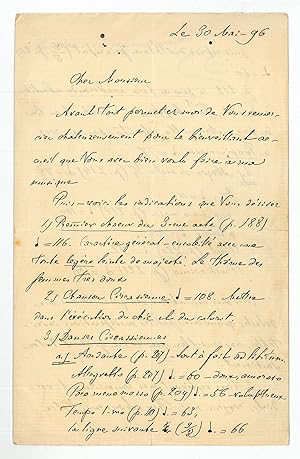 Le 30 Mai - 96
Cher Monsieur
Avant tout permettez moi de Vous remer-
cier chaleureusement pour le bienveillant ac-
cueil que Vous avez bien voulu faire à ma
musique
Puis - voici les indications que Vous désirez
1) Premier choeur du 3-eme acte (p. 188)
♩ = 116. Caractère général - ensemble avec une
toute legère teinte de majesté. Le thème des
femmes très doux
2) Chanson Circassienne ♩ = 108. Mettre
dans l'exécution du chic et du coloris.
3) Danses Circassiennes
a) Andante (p. 201) tout à fait ad libitum.
Allegretto (p. 207) ♩ = 60 - doux, amoroso
Poco meno mosso (p. 209) ♩ = 56 - voluptueux
Tempo I-mo (p. 110) ♩ = 63,
la ligne suivante ♩ = 66